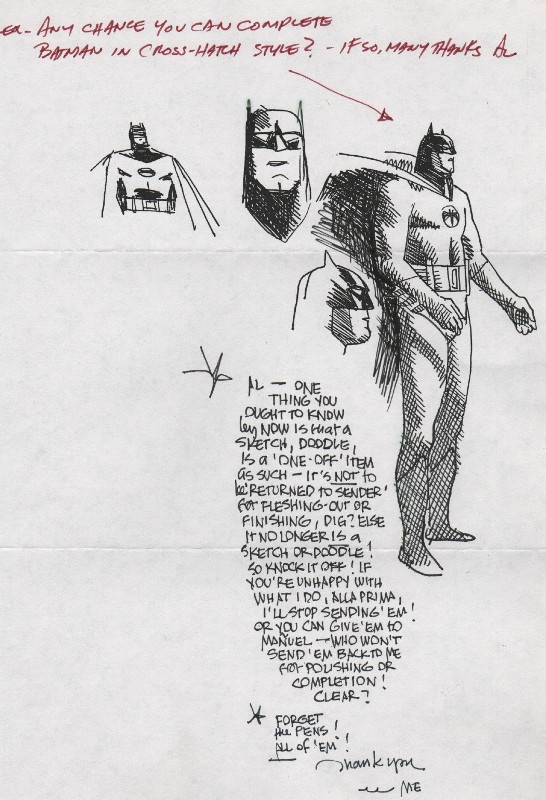 ER - ANY CHANCE YOU CAN COMPLETE
BATMAN IN CROSS-HATCH STYLE? - IF SO, MANY THANKS AL
AL — ONE
THING YOU
OUGHT TO KNOW
by NOW IS that a
SKETCH, DOODLE,
IS a 'ONE-OFF' ITEM
as SUCH — IT'S NOT to
be 'RETURNED TO SENDER'
FOR FLESHING-OUT OR
FINISHING, DIG? ELSE
IT NO LONGER IS a
SKETCH OR DOODLE!
SO KNOCK IT OFF! IF
YOU'RE UNHAPPY WITH
WHAT I DO, ALLA PRIMA,
I'LL STOP SENDING 'EM!
OR YOU CAN GIVE 'EM TO
MANUEL — WHO WON'T
SEND 'EM BACK TO ME
FOR POLISHING OR
COMPLETION!
CLEAR?
FORGET
ALL PENS!
ALL OF 'EM!
Thank you
ME